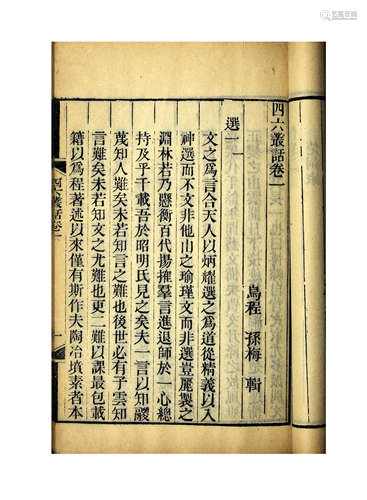 四六叢話卷一
烏程 孫梅 輯
選一
文之為言合天人以炳耀選之為道從精義以入
神選而不文非他山之瑜瑾文而非選豈麗製之
淵林若乃懸衡百代揚搉羣言進退師於一心總
持及乎千載吾於昭明氏見之矣夫一言以知謖
蔑知人難矣未若知言之難也後世必有子雲知
言難矣未若知文之尤難也更二難以課最包載
籍以為程著述以來僅有斯作夫陶冶墳素者本
四六叢話卷一
一